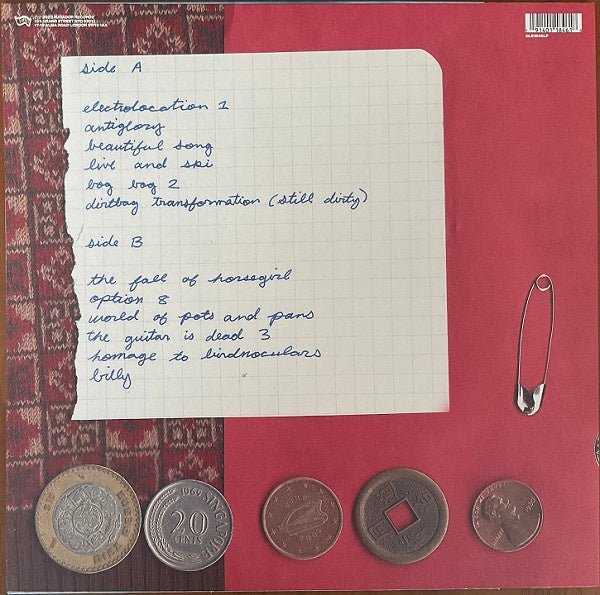 MATADOR RECORDS
side A
electrolocation 1
antiglory
beautiful song
live and ski
bog bog 2
dirtbag transformation (still dirty)
side B
the fall of horsegirl
option 8
world of pots and pans
the guitar is dead 3
homage to birdnoculars
billy
1969 SINGAPORE
20
CENTS